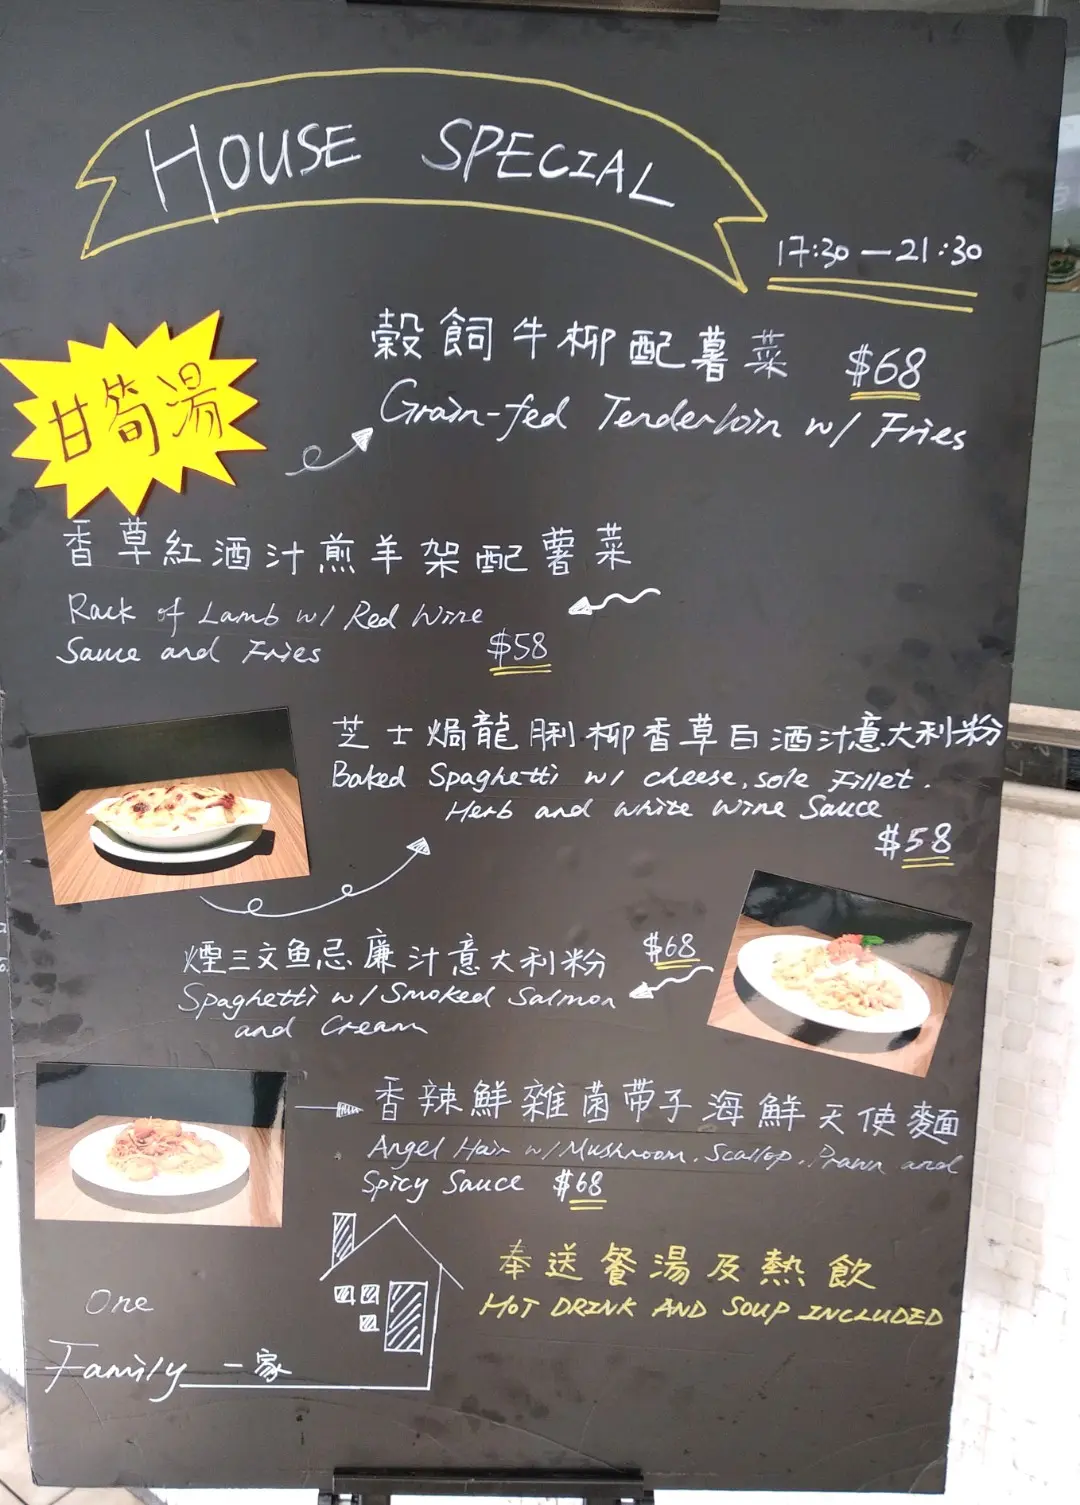 HOUSE SPECIAL
17:30—21:30
甘筍湯
穀飼牛柳配薯菜 $68
Grain-fed Tenderloin w/ Fries
香草紅酒汁煎羊架配薯菜
Rack of Lamb w/ Red Wine
Sauce and Fries $58
芝士焗龍脷柳香草白酒汁意大利粉
Baked Spaghetti w/ cheese, sole Fillet.
Herb and white wine Sauce
$58
煙三文鱼忌廉汁意大利粉 $68
Spaghetti w/ Smoked Salmon
and Cream
香辣鮮雜菌帶子海鮮天使麵
Angel Hair w/ Mushroom, Scallop, Prawn and
Spicy Sauce $68
奉送餐湯及熱飲
HOT DRINK AND SOUP INCLUDED
One
Family 一家